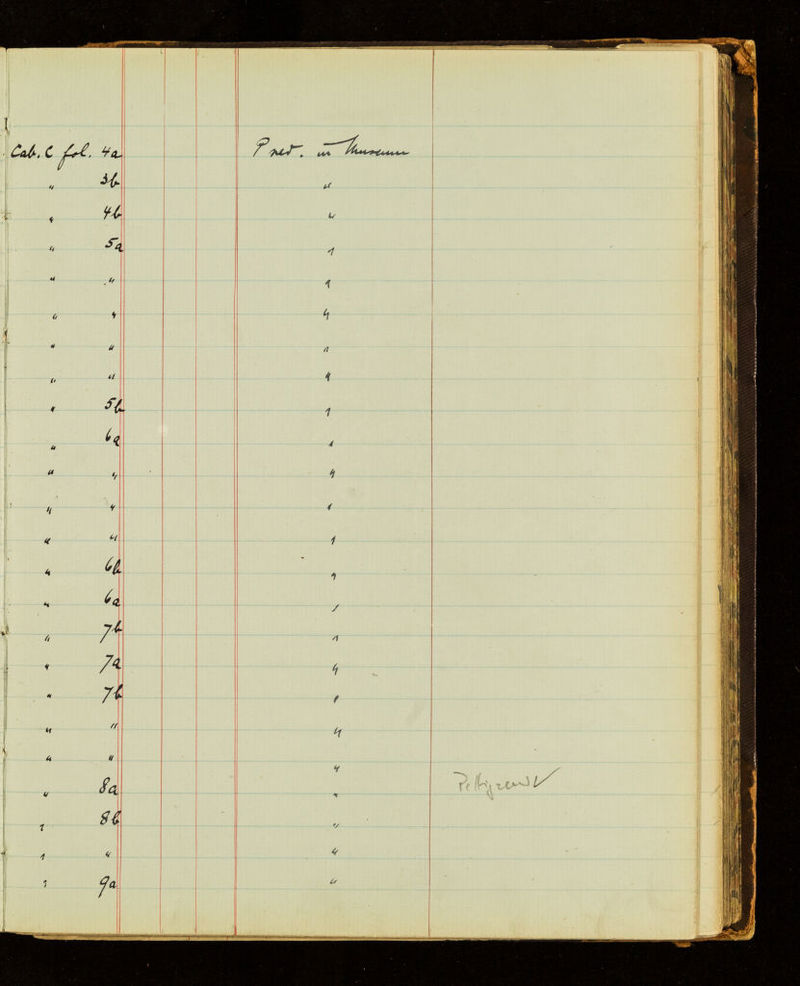 Cab. C fol. 4a P ned. in Museum
" 3b "
" 4b "
" 5a "
" " "
" " "
" " "
" " "
" 5b "
" 6a "
" " "
" " "
" " "
" 6b "
" 6a "
" 7b "
" 7a "
" 7b "
" " "
" " "
" 8a " Pettigrew
" 8b "
" " "
" 9a "